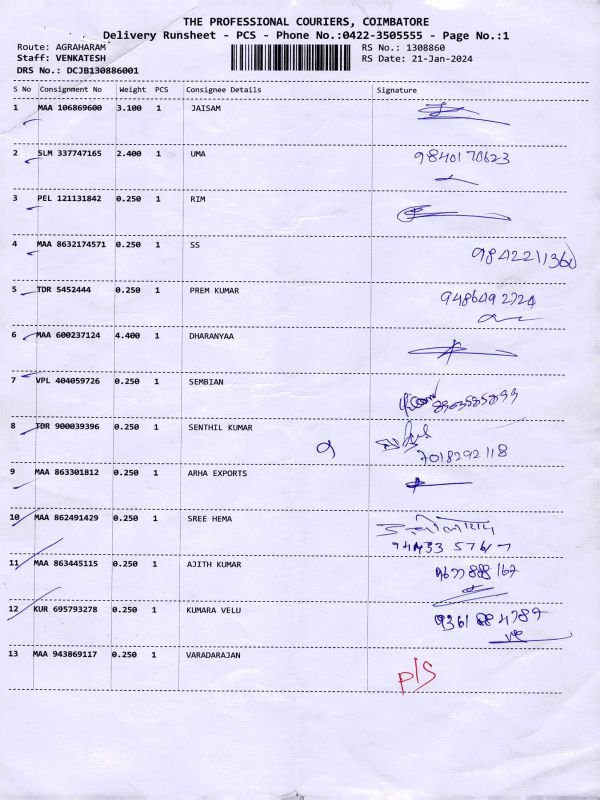 THE PROFESSIONAL COURIERS, COIMBATORE
Delivery Runsheet - PCS - Phone No.:0422-3505555 - Page No.:1
Route: AGRAHARAM RS No.: 1308860
Staff: VENKATESH RS Date: 21-Jan-2024
DRS No.: DCJB130886001
S No Consignment No Weight PCS Consignee Details Signature
1 MAA 106869600 3.100 1 JAISAM
2 SLM 337747165 2.400 1 UMA 9840170623
3 PEL 121131842 0.250 1 RIM
4 MAA 8632174571 0.250 1 SS 9842211360
5 TDR 5452444 0.250 1 PREM KUMAR 9486492724
6 MAA 600237124 4.400 1 DHARANYAA
7 VPL 404059726 0.250 1 SEMBIAN
8 TDR 900039396 0.250 1 SENTHIL KUMAR
7018292118
9 MAA 863301812 0.250 1 ARHA EXPORTS
10 MAA 862491429 0.250 1 SREE HEMA
94433 57617
11 MAA 863445115 0.250 1 AJITH KUMAR
12 KUR 695793278 0.250 1 KUMARA VELU 9361884789
13 MAA 943869117 0.250 1 VARADARAJAN
P/S